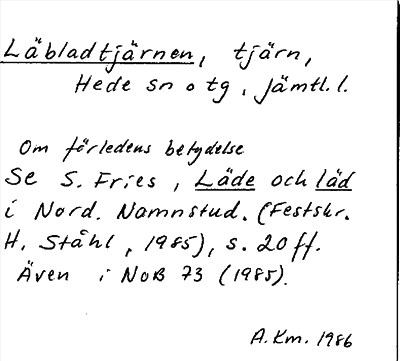 Läbladtjärnen, tjärn,
Hede sn o tg, Jämtl. l.
Om förledens betydelse
Se S. Fries, Läde och läd
i Nord. Namnstud. (Festskr.
H. Ståhl, 1985), s. 20 ff.
Även i NoB 73 (1985).
A. Km. 1986